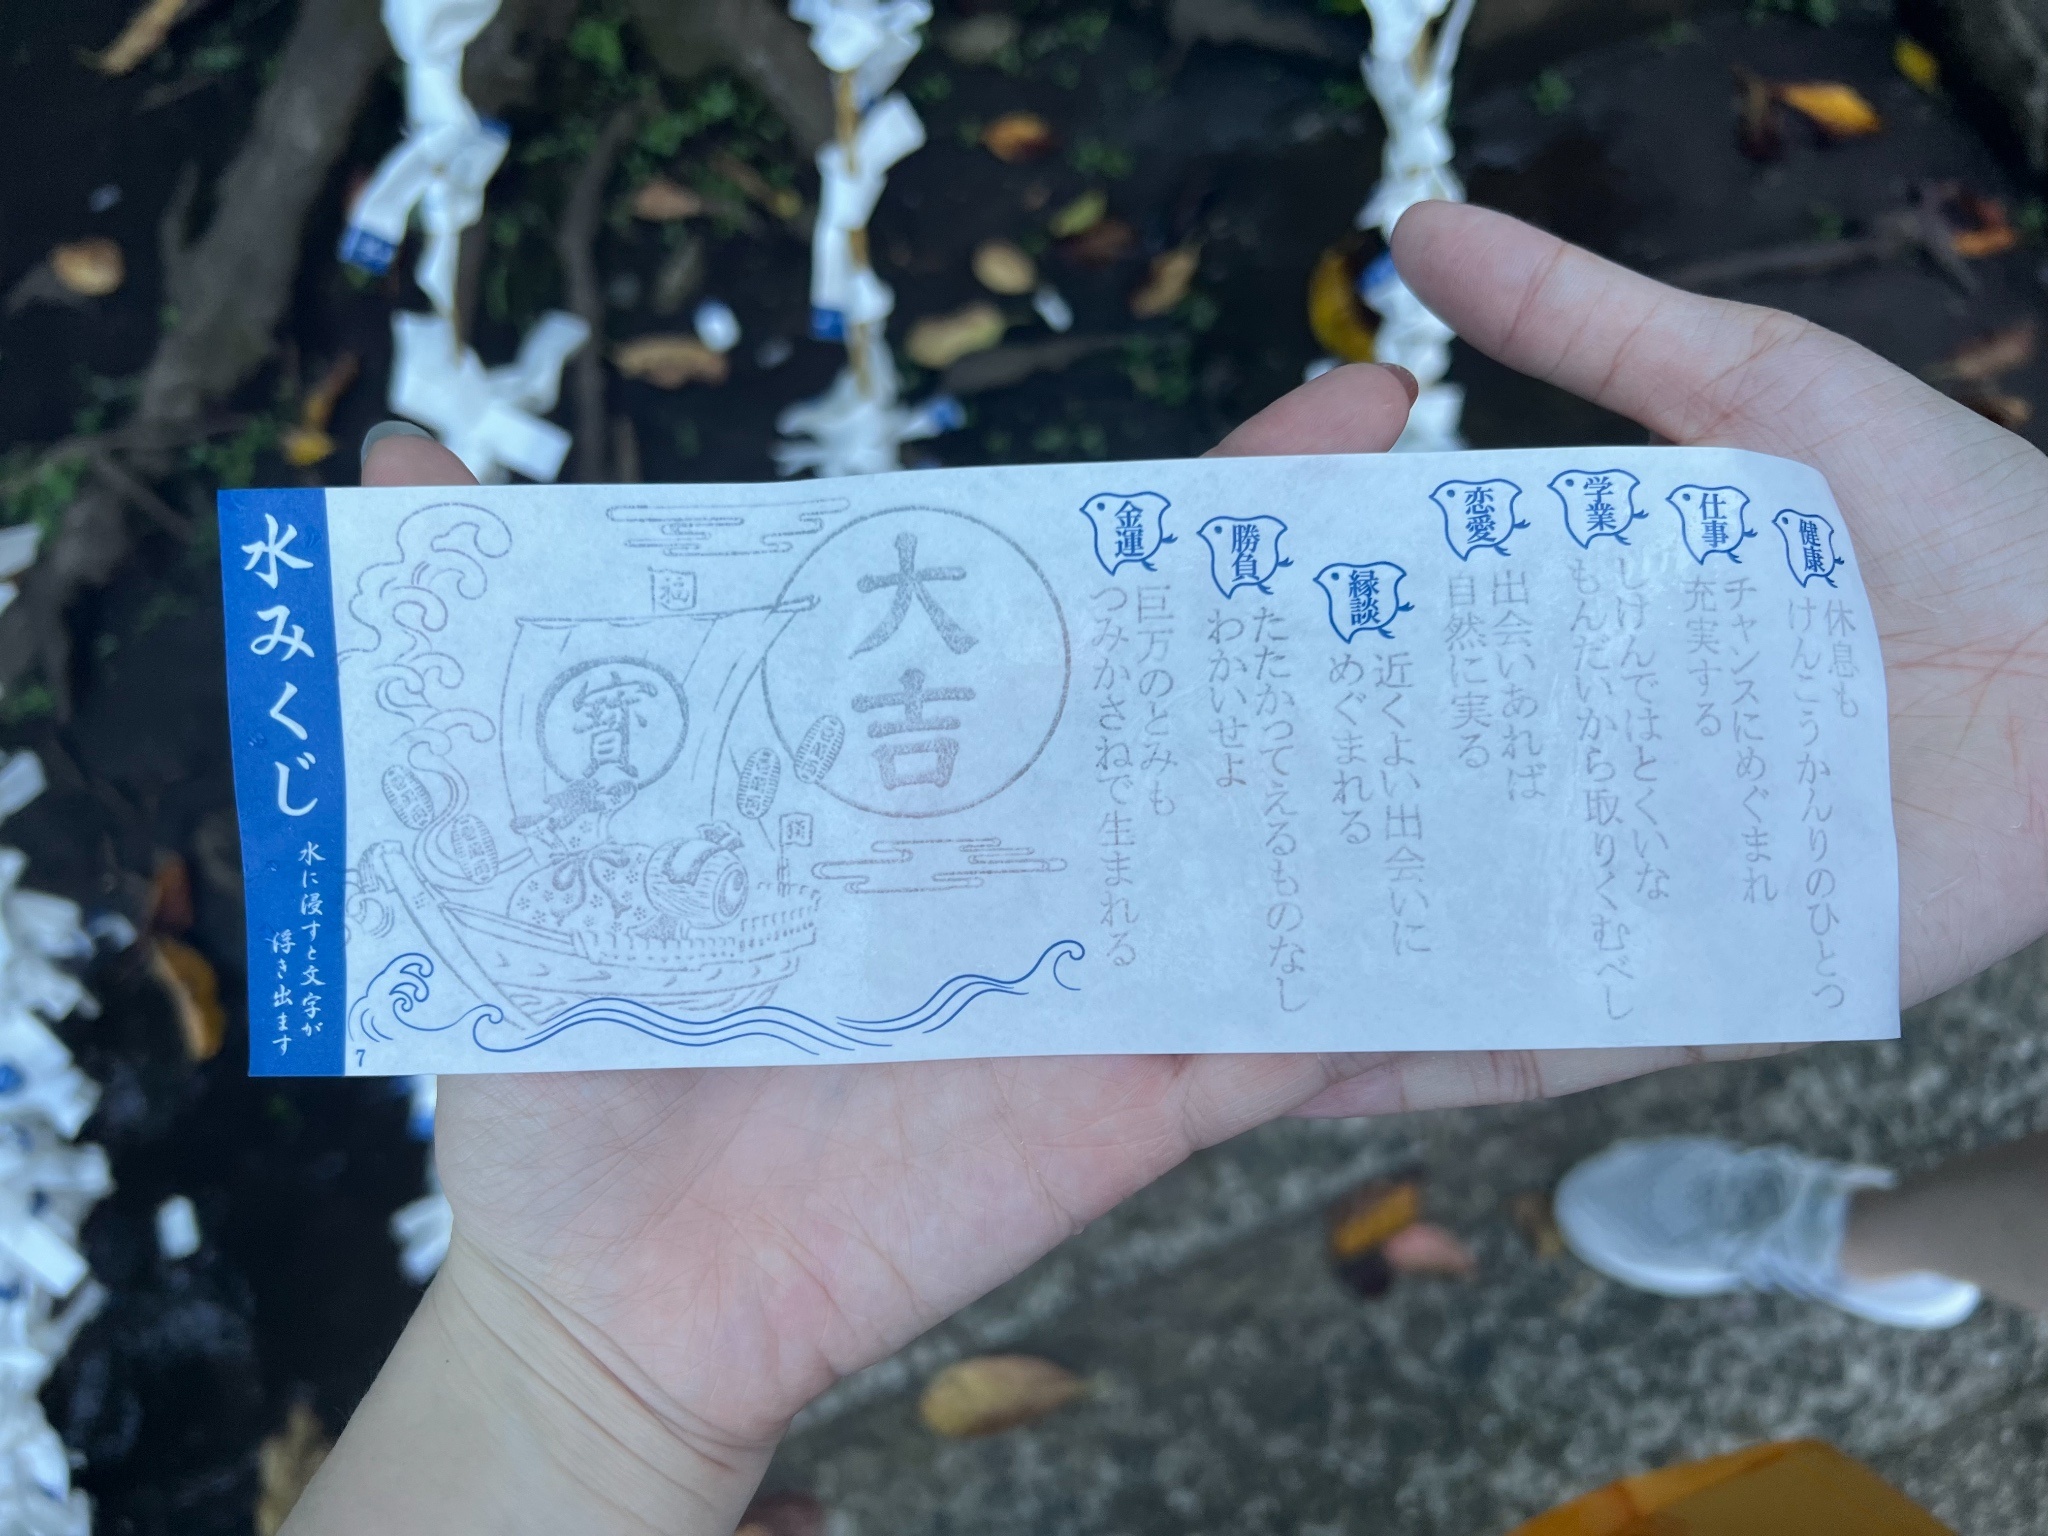 水みくじ
水に浸すと文字が
浮き出ます
7
福
寳
大吉
健康
休息も
けんこうかんりのひとつ
仕事
チャンスにめぐまれ
充実する
学業
しけんではとくいな
もんだいから取りくむべし
恋愛
出会いあれば
自然に実る
縁談
近くよい出会いに
めぐまれる
勝負
たたかってえるものなし
わかいせよ
金運
巨万のとみも
つみかさねで生まれる